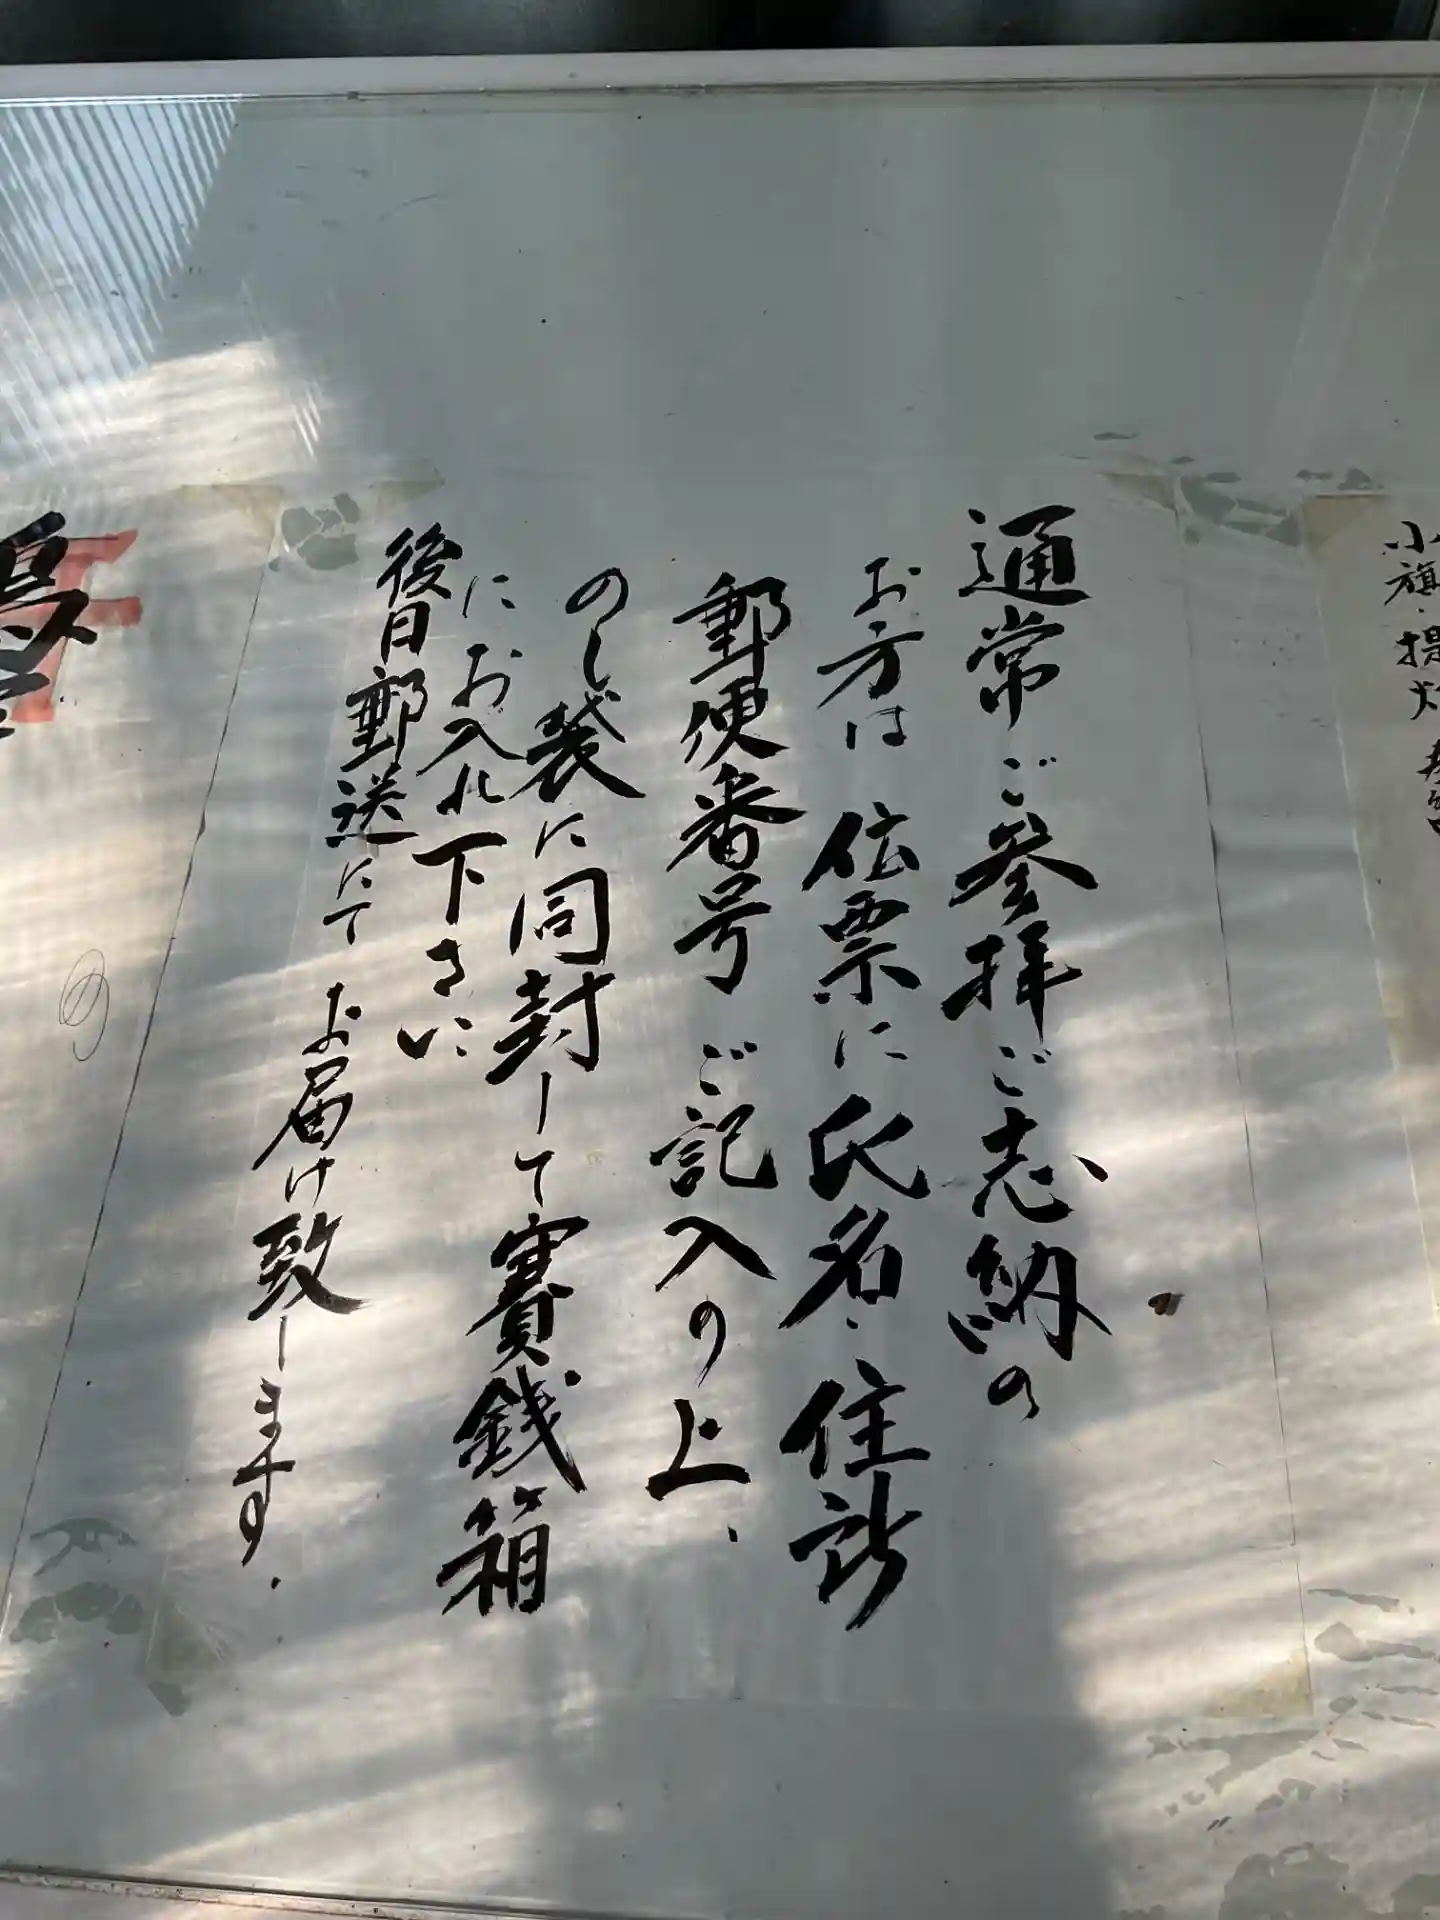 小旗・提灯
通常ご参拝ご志納の
お方は伝票に氏名・住所
郵便番号ご記入の上、
のし袋に同封して賽銭箱
にお入れ下さい
後日郵送にてお届け致します.